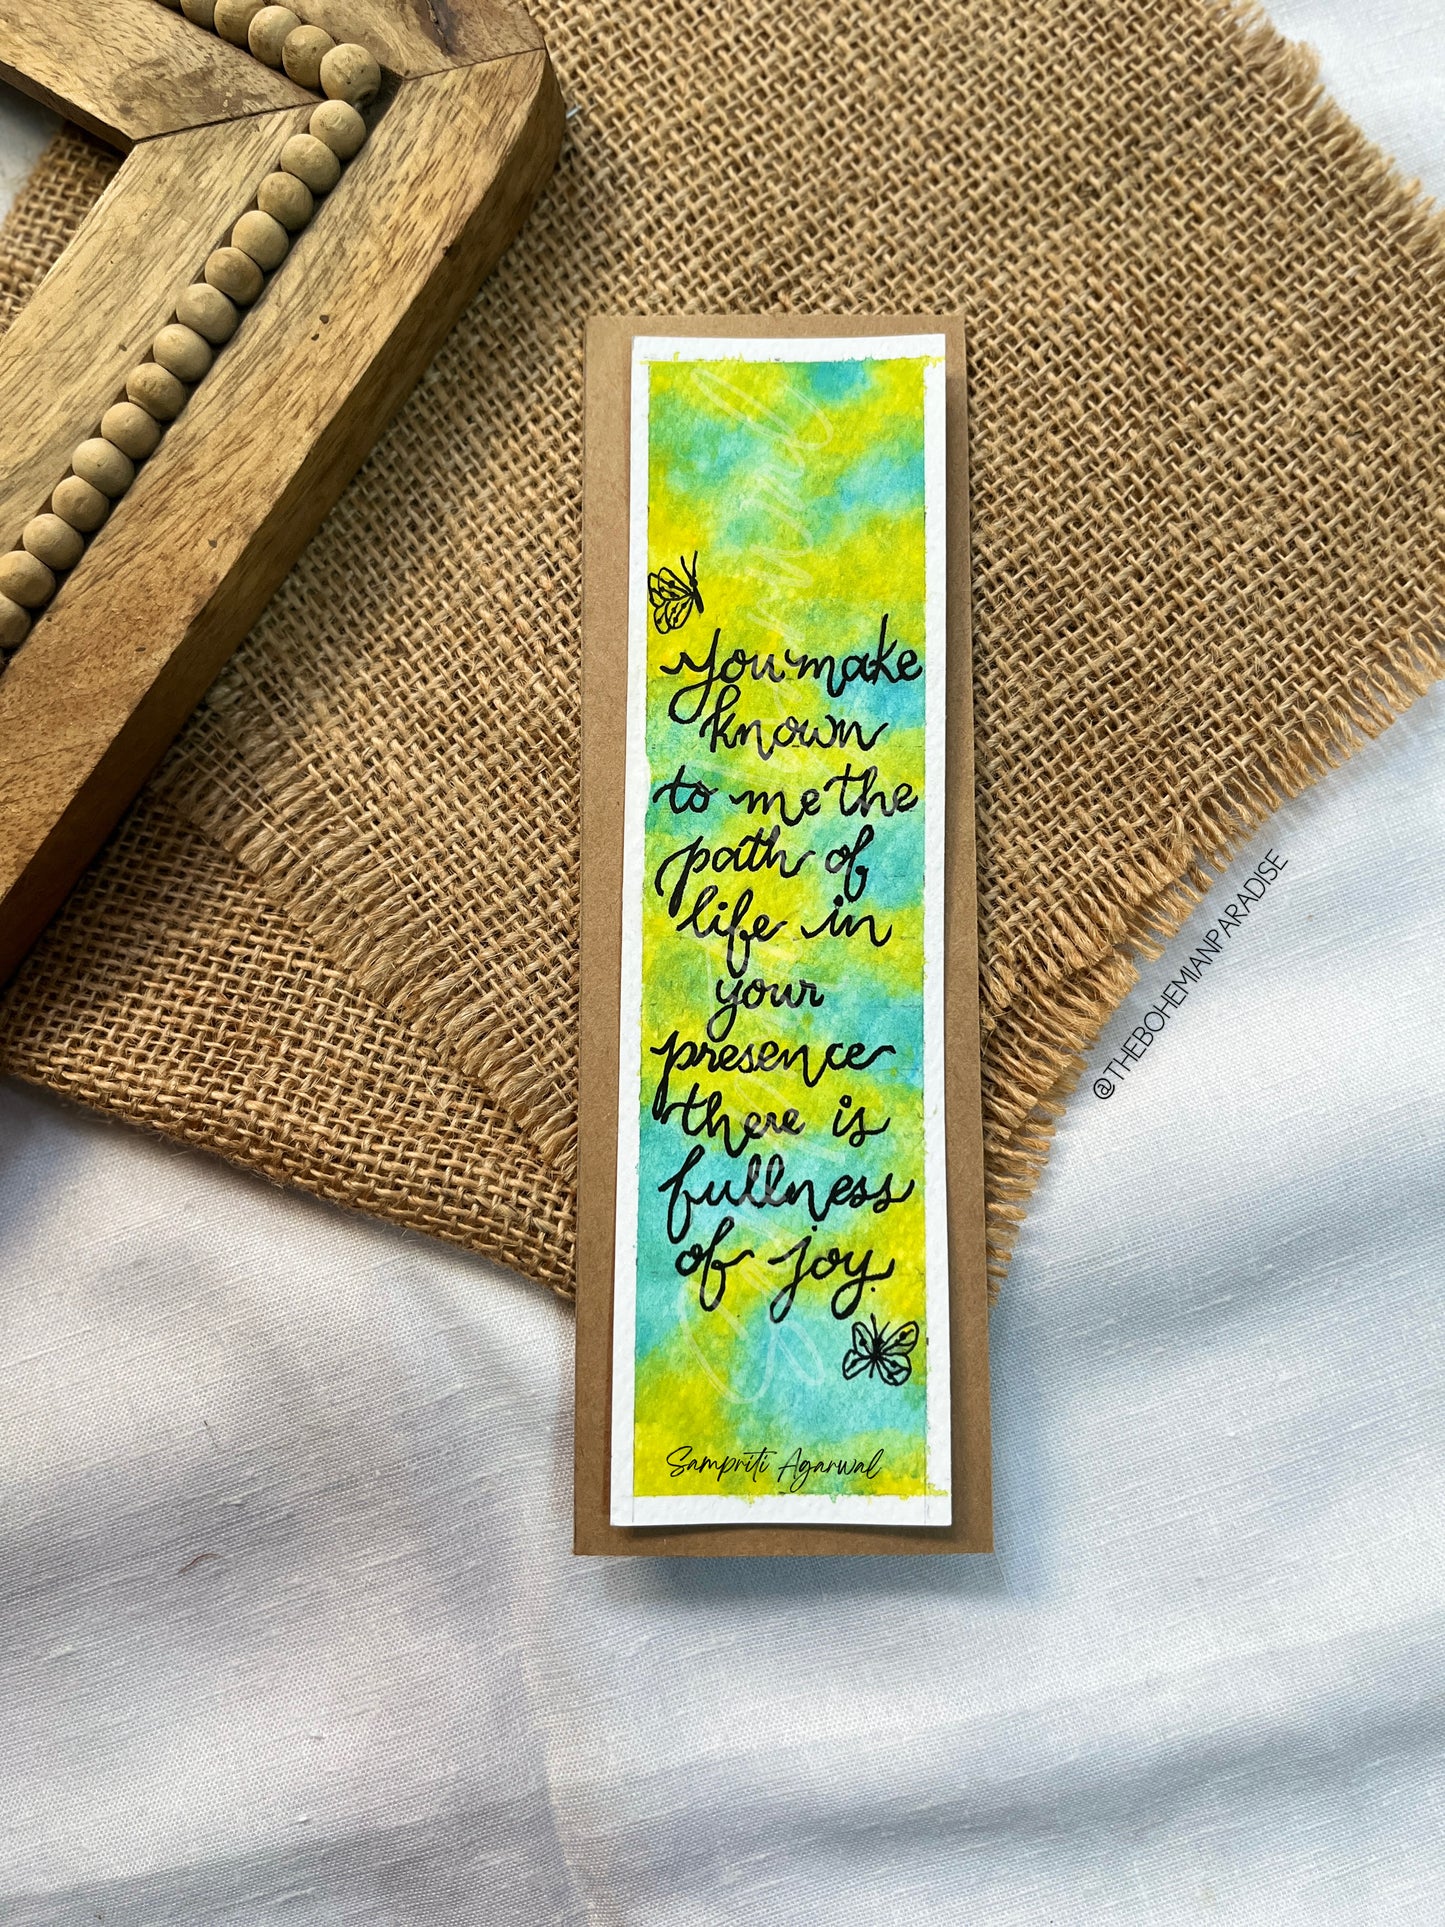 You make
known
to me the
path of
life in
your
presence
there is
fullness
of joy.
Sampriti Agarwal
@THEBOHEMIANPARADISE